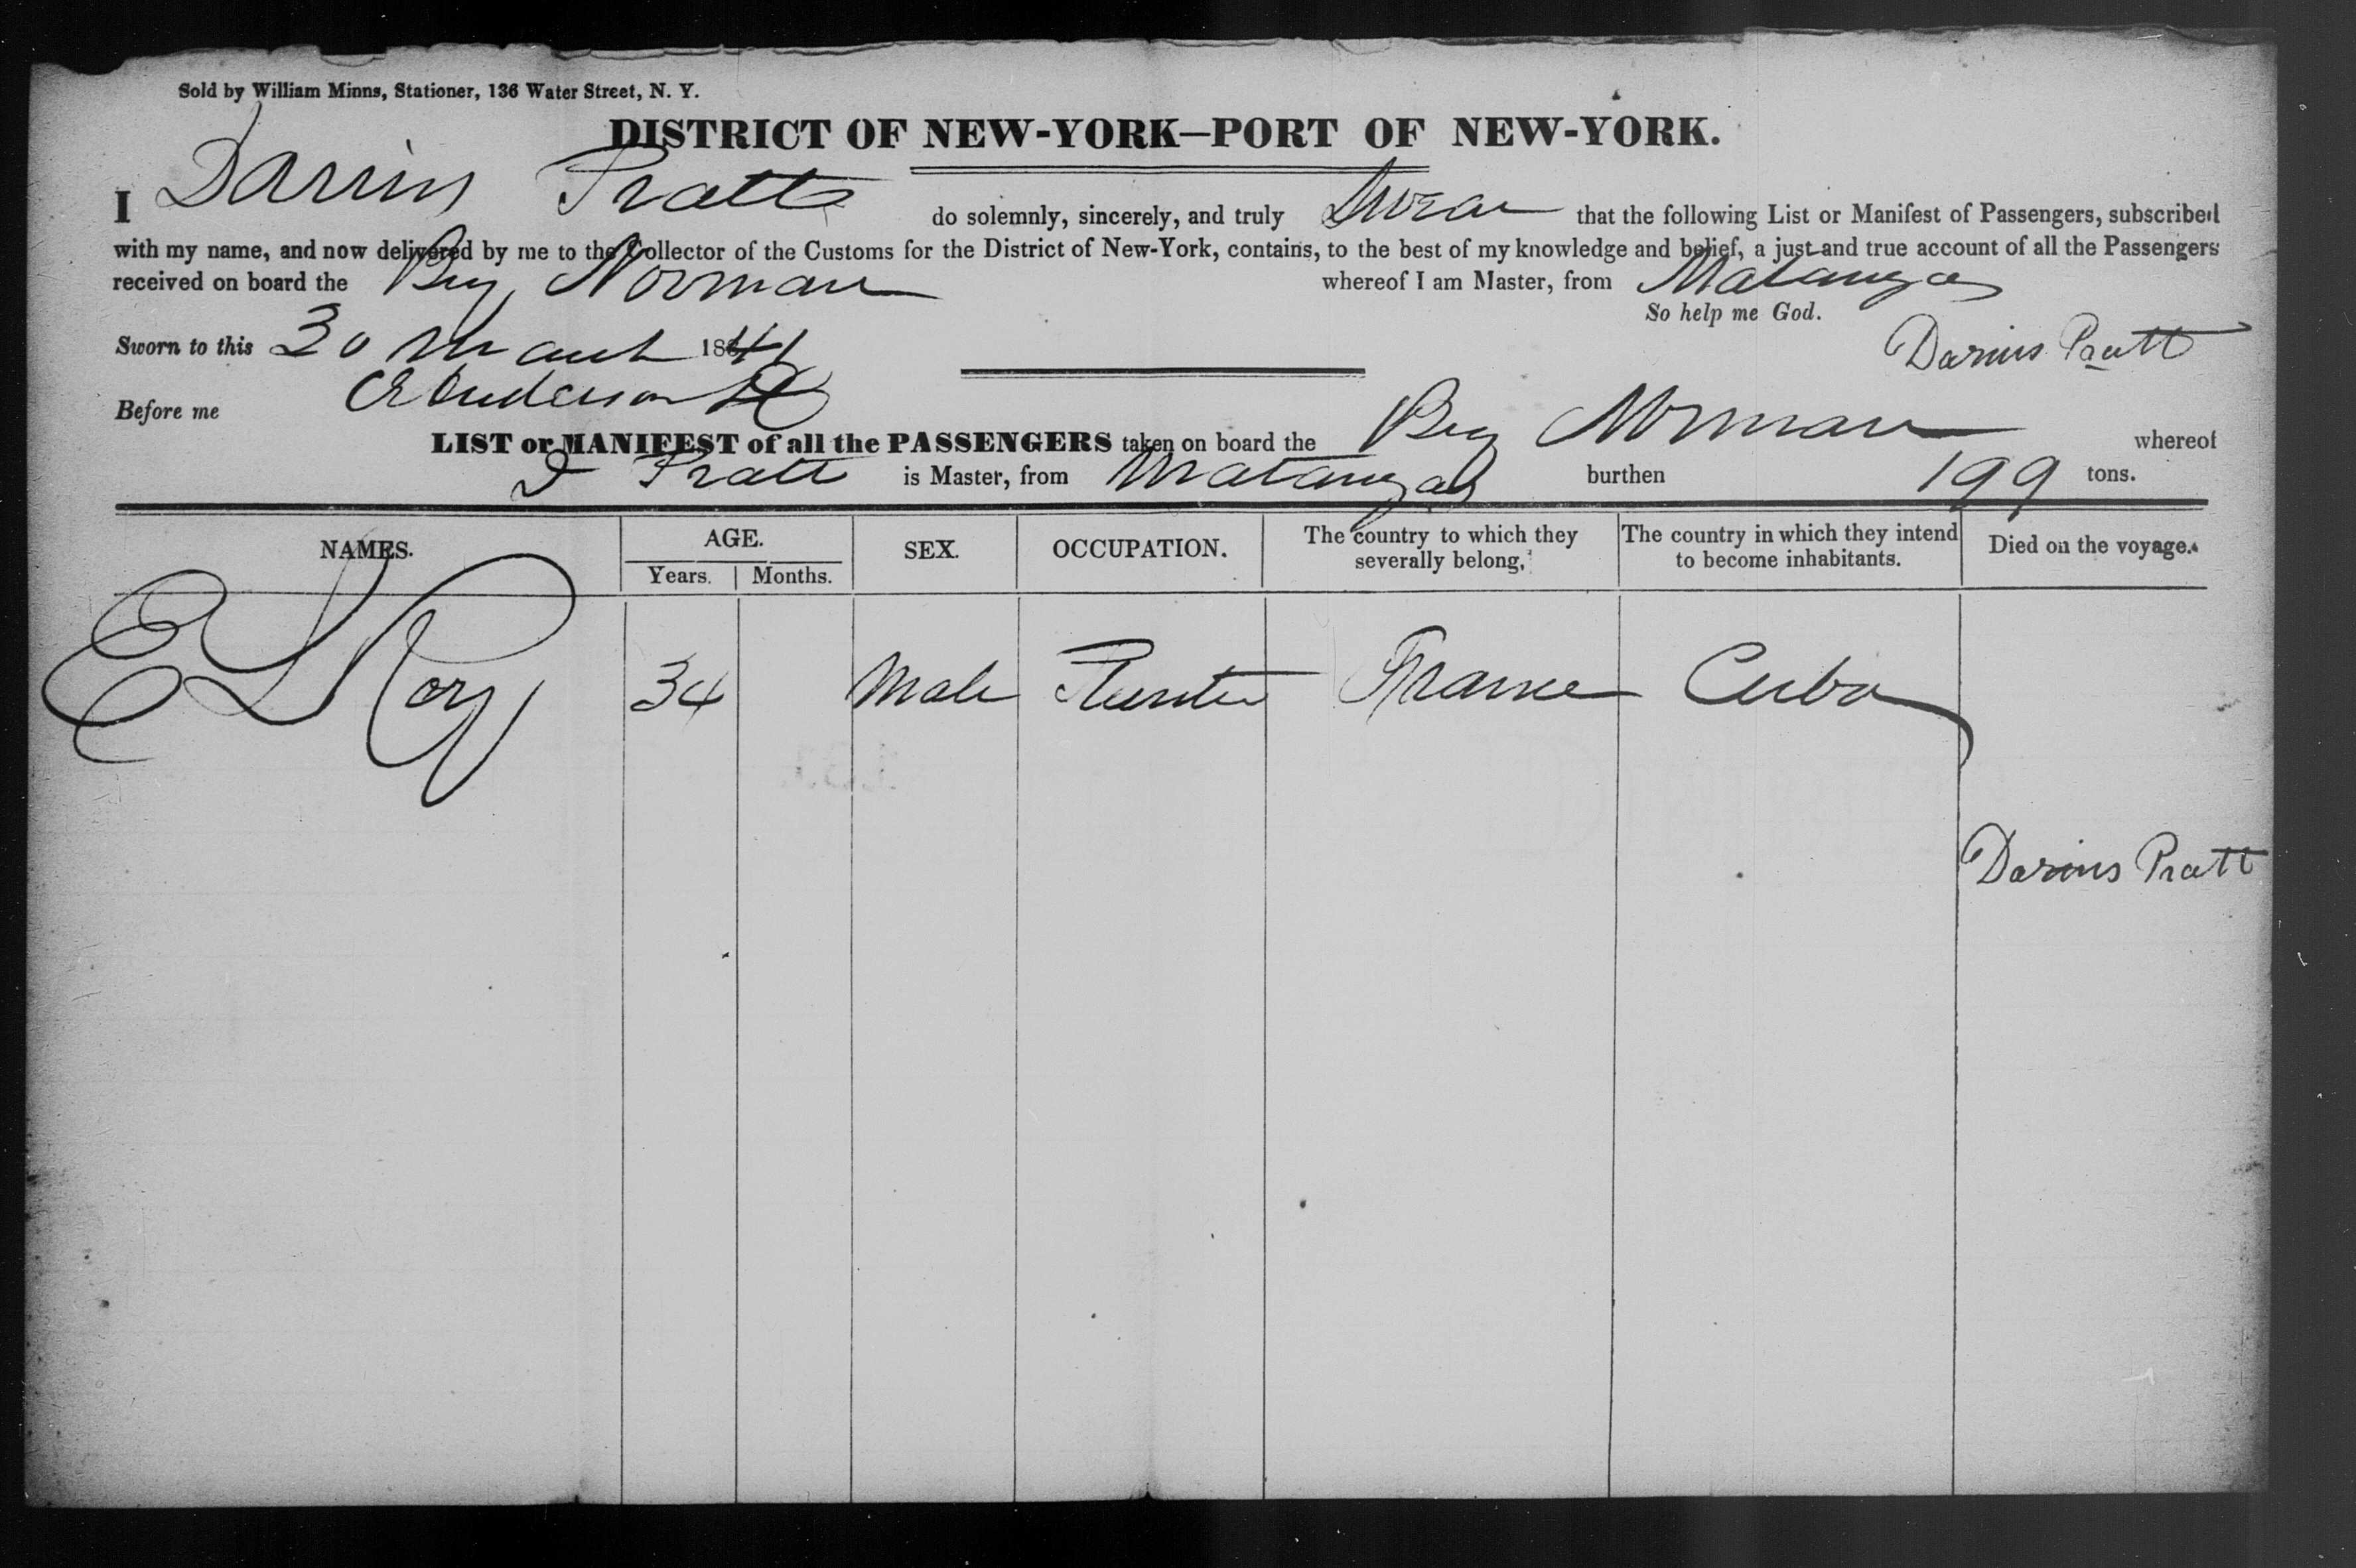 Sold by William Minns, Stationer, 136 Water Street, N. Y.
DISTRICT OF NEW-YORK—PORT OF NEW-YORK.
I Darius Pratt do solemnly, sincerely, and truly Swear that the following List or Manifest of Passengers, subscribed
with my name, and now delivered by me to the Collector of the Customs for the District of New-York, contains, to the best of my knowledge and belief, a just and true account of all the Passengers
received on board the Brig Norman whereof I am Master, from Matanzas
So help me God.
Sworn to this 30 March 1841 Darius Pratt
Before me Anderson
LIST or MANIFEST of all the PASSENGERS taken on board the Brig Norman whereof
D Pratt is Master, from Matanzas burthen 199 tons.
NAMES. AGE. Years. Months. SEX. OCCUPATION. The country to which they severally belong, The country in which they intend to become inhabitants. Died on the voyage.
E L Roy 34 Male Planter France Cuba
Darius Pratt